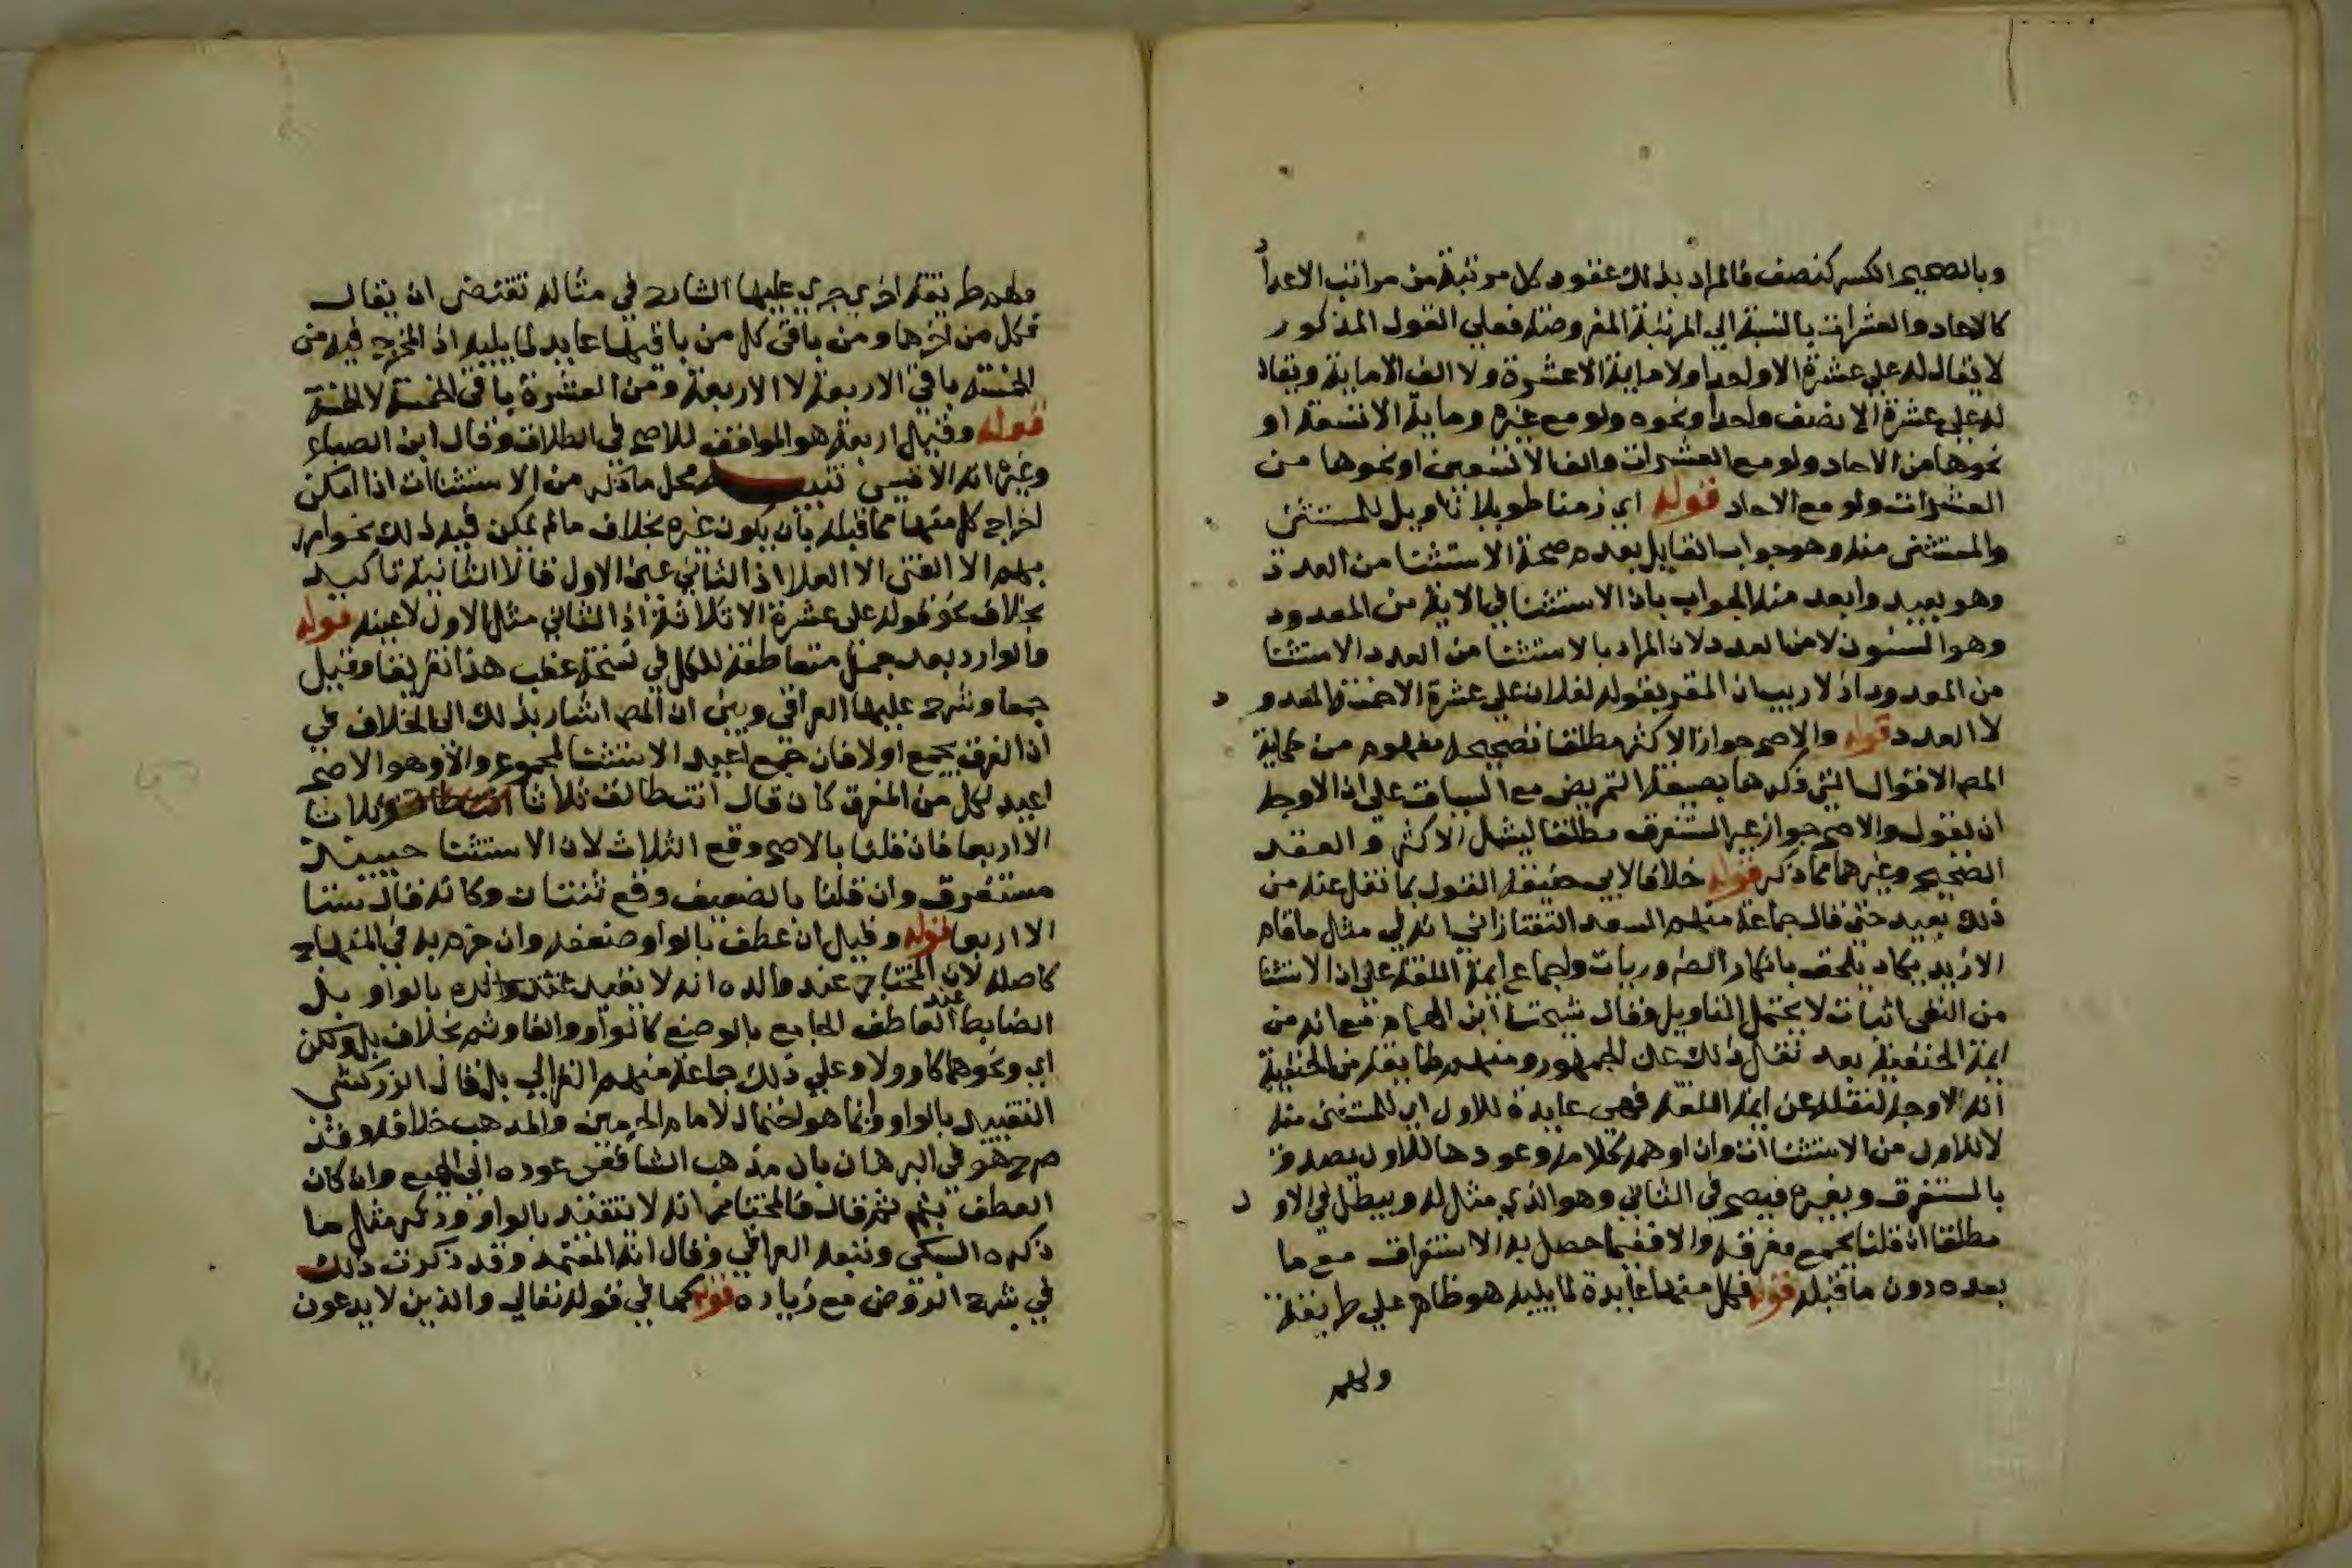 وبالصحيح الكسر كنصف فالمراد بذلك عقود كل مرتبة من مراتب الاعداد
كالاحاد والعشرات بالنسبة الي المرتبة المفروضة فعلي القول المذكور
لا يقال له علي عشرة الا واحدا ولا ماية الا عشرة ولا الف الا ماية ويقال
له علي عشرة الا نصف واحد ونحوه ولو مع غيره وماية الا تسعة او
نحوها من الاحاد ولو مع العشرات والف الا تسعين او نحوها من
العشرات ولو مع الاحاد قوله اي زمنا طويلا تاويل للمستثنى
والمستثنى منه وهو جواب القايل بعدم صحة الاستثنا من العدد
وهو بعيد وابعد منه الجواب بان الاستثنا في الاية من المعدود
وهو السنون لا من العدد لان المراد بالاستثنا من العدد الاستثنا
من المعدود اذ لا ريب ان المقر بقوله لفلان علي عشرة الا خمسة المعدود
لا العدد قوله والاصح جواز الاكثر مطلقا تصحيحه مفهوم من حكاية
المص الاقوال التي ذكرها بصيغة التمريض مع السياق علي ان الاوجه
ان يقول والاصح جواز غير المستغرق مطلقا ليشمل الاكثر والعقد
الصحيح وغيرهما مما ذكر قوله خلافا لابي حنيفة القول بما نقل عنه من
ذلك بعيد حتى قال جماعة منهم السعد التفتازاني انه في مثل ما قام
الا زيد يكاد يلحق بانكار الضروريات واجماع ايمة اللغة علي ان الاستثنا
من النفي اثبات لا يحتمل التاويل وقال شيخنا ابن الهمام مع انه من
ايمة الحنفية بعد نقل ذلك عن الجمهور ومنهم طايفة من الحنفية
انه الاوجه لنقله عن ايمة اللغة فهي عايدة للاول اي للمستثنى منه
لا للاول من الاستثناات وان اوهمه كلامه وعودها للاول يصدق
بالمستغرق وبغيره فيصح في الثاني وهو الذي مثل له ويبطل في الاول
مطلقا ان قلنا يجمع مفرقه والا ففيما حصل به الاستغراق مع ما
بعده دون ما قبله قوله فكل منها عايدة لما يليه هو ظاهر علي طريقة
ولهم
ولهم طريقة اخرى جرى عليها الشارح في مثاله تقتضى ان يقال
فكل من اخرها ومن باقي كل من باقيها عايد لما يليه اذ المخرج فيه من
الخمسة باقي الاربعة لا الاربعة ومن العشرة باقي الخمسة لا الخمسة
قوله وقيل اربعة هو الموافق للاصح في الطلاق وقال ابن الصباغ
وغيره انه الاقيس تنبيه محل ما ذكر من الاستثناات اذا امكن
اخراج كل منها مما قبله بان يكون غيره بخلاف ما لم يمكن فيه ذلك نحو امرر
بهم الا الفتى الا العلا اذ الثاني عين الاول فالا الثانية تاكيد
بخلاف نحو قوله علي عشرة الا ثلاثة اذ الثاني مثل الاول لا عينه قوله
والوارد بعد جمل متعاطفة للكل في نسخة عقب هذا تفريقا وقيل
جمعا وشرح عليها العراقي وبين ان المص اشار بذلك الى الخلاف في
ان المفرق يجمع اولا فان جمع اعيد الاستثنا لمجموع والا وهو الاصح
اعيد لكل من المفرق كان قال انت طالق ثلاثا وثلاثا
الا اربعا فان قلنا بالاصح وقع الثلاث لان الاستثنا حينيذ
مستغرق وان قلنا بالضعيف وقع ثنتان وكانه قال ستا
الا اربعا قوله وقيل ان عطف بالواو ضعفه وان جزم به في المنهاج
كاصله لان المختار عند والده انه لا يتقيد عنده ذلك بالواو بل
الضابط عند العاطف الجامع بالوضع كالواو والفا وثم بخلاف بل ولكن
اي ونحوهما كاو ولا وعلي ذلك جماعة منهم الغزالي بل قال الزركشي
التقييد بالواو وانما هو احتمال لامام الحرمين والمذهب خلافه وقد
صرح هو في البرهان بان مذهب الشافعى عوده الى الجميع وان كان
العطف بثم ثم قال فالمختار انه لا يتقيد بالواو وذكر مثل ما
ذكره السبكي وتبعه العراقي وقال انه المعتمد وقد ذكرت ذلك
في شرح الروض مع زيادة قوله كما في قوله تعالي والذين لا يدعون